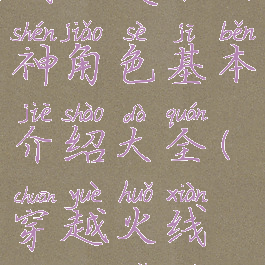 shén jiǎo sè jī běn
神角色基本
jiè shào dà quán
介绍大全(
chuān yuè huǒ xiàn
穿越火线